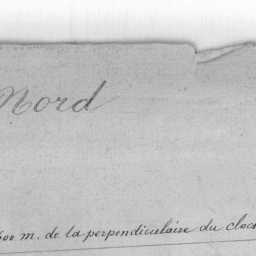 Nord
600 m. de la perpendiculaire du